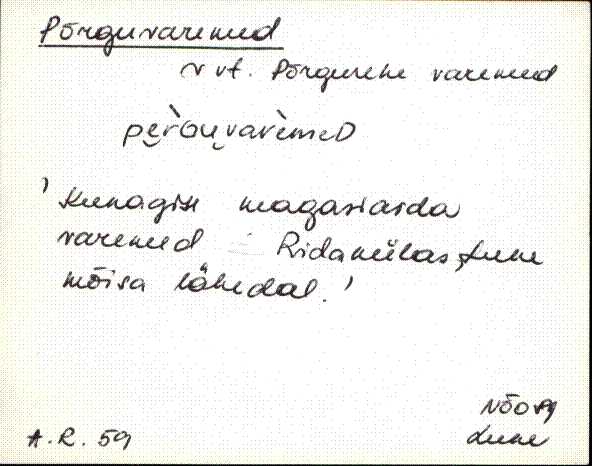 Põrguvaremed
v vt. Põrgurehe varemed
pe̮rGuvarèmeD
' Kunagise magasiaida
varemed Ridakülas, Luke
mõisa lähedal.'
A.R. 59
Nõo 59
Luke